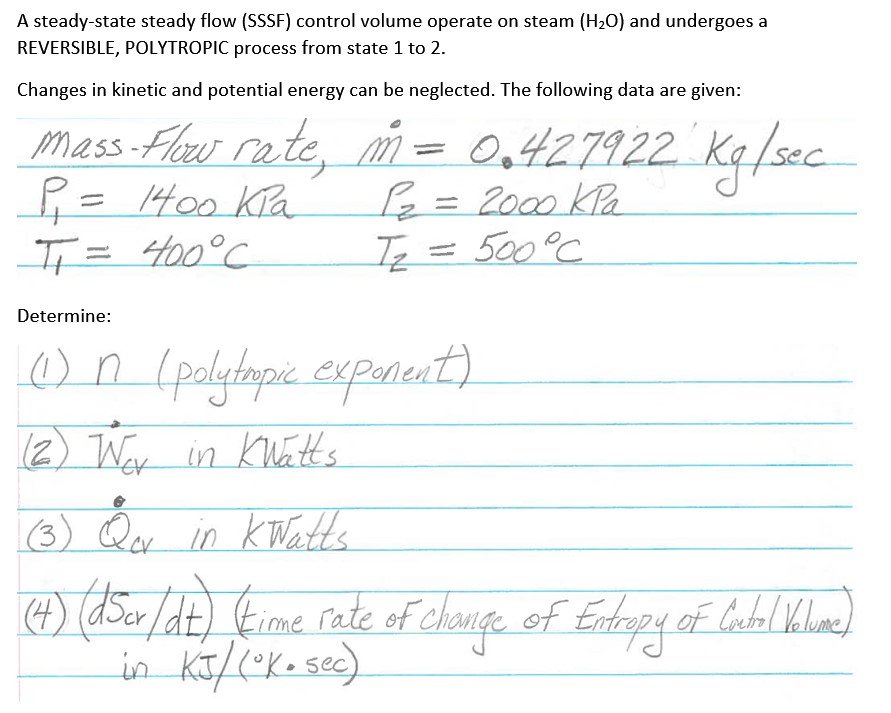 A steady-state steady flow (SSSF) control volume operate on steam (H₂O) and undergoes a
REVERSIBLE, POLYTROPIC process from state 1 to 2.
Changes in kinetic and potential energy can be neglected. The following data are given:
Mass-Flow rate, ṁ = 0.427922 Kg/sec
P₁ = 1400 KPa P₂ = 2000 KPa
T₁ = 400°C T₂ = 500°C
Determine:
(1) n (polytropic exponent)
(2) Ẇcv in KWatts
(3) Q̇cv in KWatts
(4) (dScv/dt) (time rate of change of Entropy of Control Volume)
in KJ/(°K•sec)